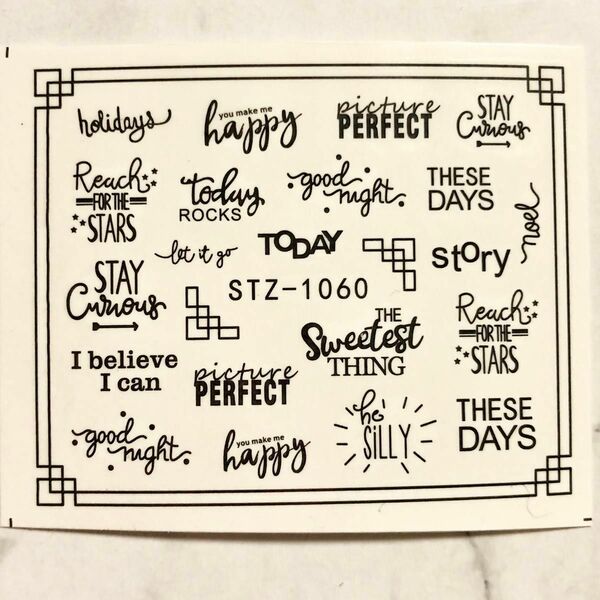 holidays
you make me
happy
picture
PERFECT
STAY
Curious
Reach
FOR THE
STARS
today
ROCKS
good
night
THESE
DAYS
noel
let it go
TODAY
story
STAY
Curious
STZ-1060
THE
Sweetest
THING
Reach
FOR THE
STARS
I believe
I can
picture
PERFECT
good
night
you make me
happy
be
SiLLY
THESE
DAYS